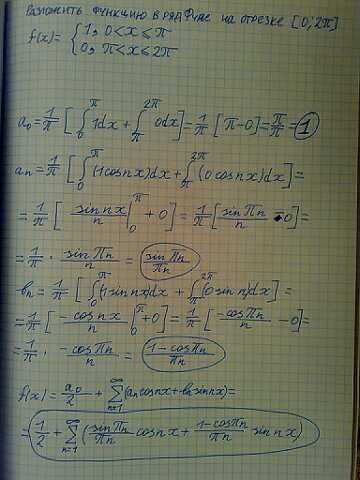 Разложить функцию в ряд Фурье на отрезке [0; 2π]
f(x) = { 1, 0 < x ≤ π
0, π < x ≤ 2π
a₀ = 1/π [ ∫₀^π 1dx + ∫_π^2π 0dx ] = 1/π [π - 0] = π/π = 1
aₙ = 1/π [ ∫₀^π (1 cos nx)dx + ∫_π^2π (0 cos nx)dx ] =
= 1/π [ sin nx / n |₀^π + 0 ] = 1/π [ sin πn / n - 0 ] =
= 1/π · sin πn / n = sin πn / πn
bₙ = 1/π [ ∫₀^π (1 sin nx)dx + ∫_π^2π (0 sin n)dx ] =
= 1/π [ -cos nx / n |₀^π + 0 ] = 1/π [ -cos πn / n - 0 ] =
= 1/π · -cos πn / n = 1 - cos πn / πn
f(x) = a₀/2 + ∑_{n=1}^∞ (aₙ cos nx + bₙ sin nx) =
= 1/2 + ∑_{n=1}^∞ ( sin πn / πn cos nx + 1 - cos πn / πn sin nx )